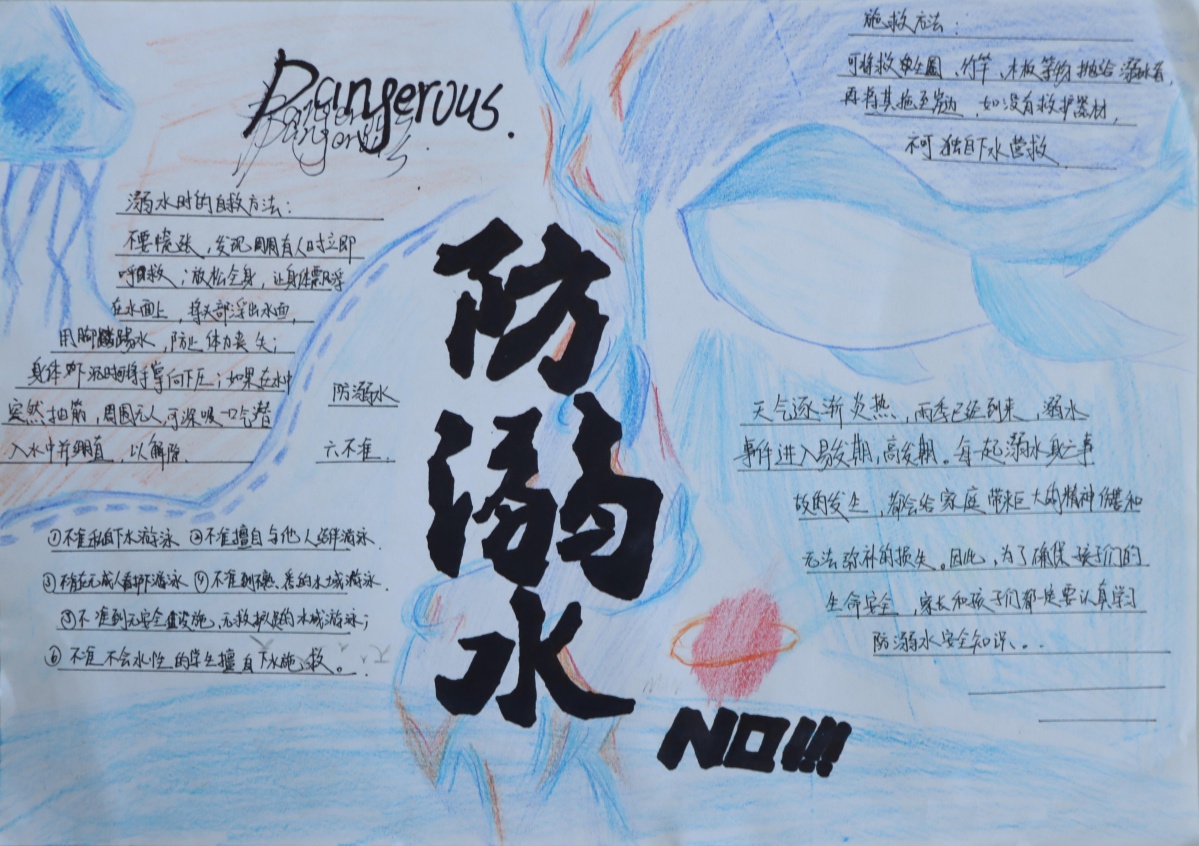 Dangerous.
溺水时的自救方法:
不要慌张,发现周围有人时立即
呼救;放松全身,让身体飘浮
在水面上,将头部浮出水面,
用脚踢水,防止体力丧失;
身体下沉时将手掌向下压;如果在水中
突然抽筋,周围无人,可深吸一口气潜
入水中并绷直,以解除
防溺水
六不准.
①不准私自下水游泳 ②不准擅自与他人结伴游泳.
③不准在无成人看护游泳 ④不准到不熟悉的水域游泳.
⑤不准到无安全设施、无救护员的水域游泳;
⑥不准不会水性的学生擅自下水施救。
防溺水
NO!!!
施救方法:
可将救生圈、竹竿、木板等物抛给溺水者,
再将其拖至岸边,如没有救护器材,
不可独自下水营救.
天气逐渐炎热,雨季已经到来,溺水
事件进入易发期,高发期。每一起溺水死亡事
故的发生,都会给家庭带来巨大的精神伤害和
无法弥补的损失。因此,为了确保孩子们的
生命安全,家长和孩子们都是要认真学习
防溺水安全知识...